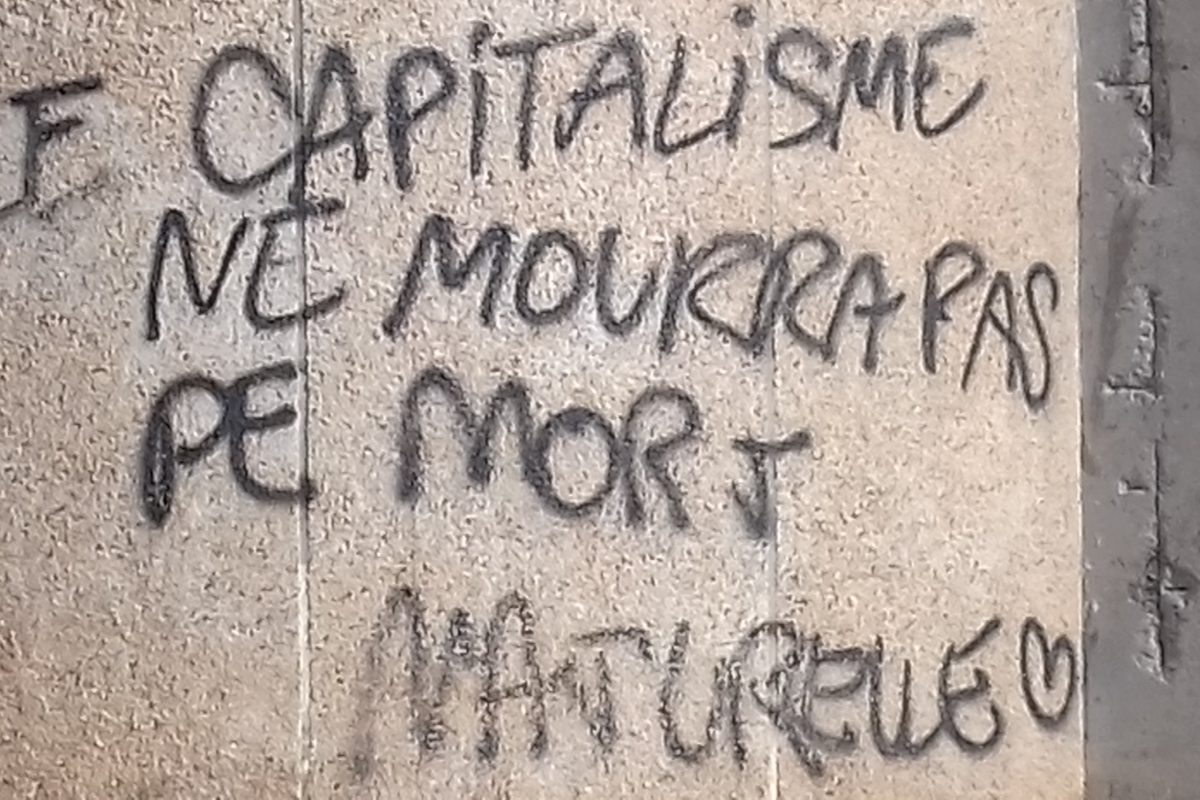 LE CAPiTALiSME
NE MOURRA PAS
DE MORT
NATURELLE